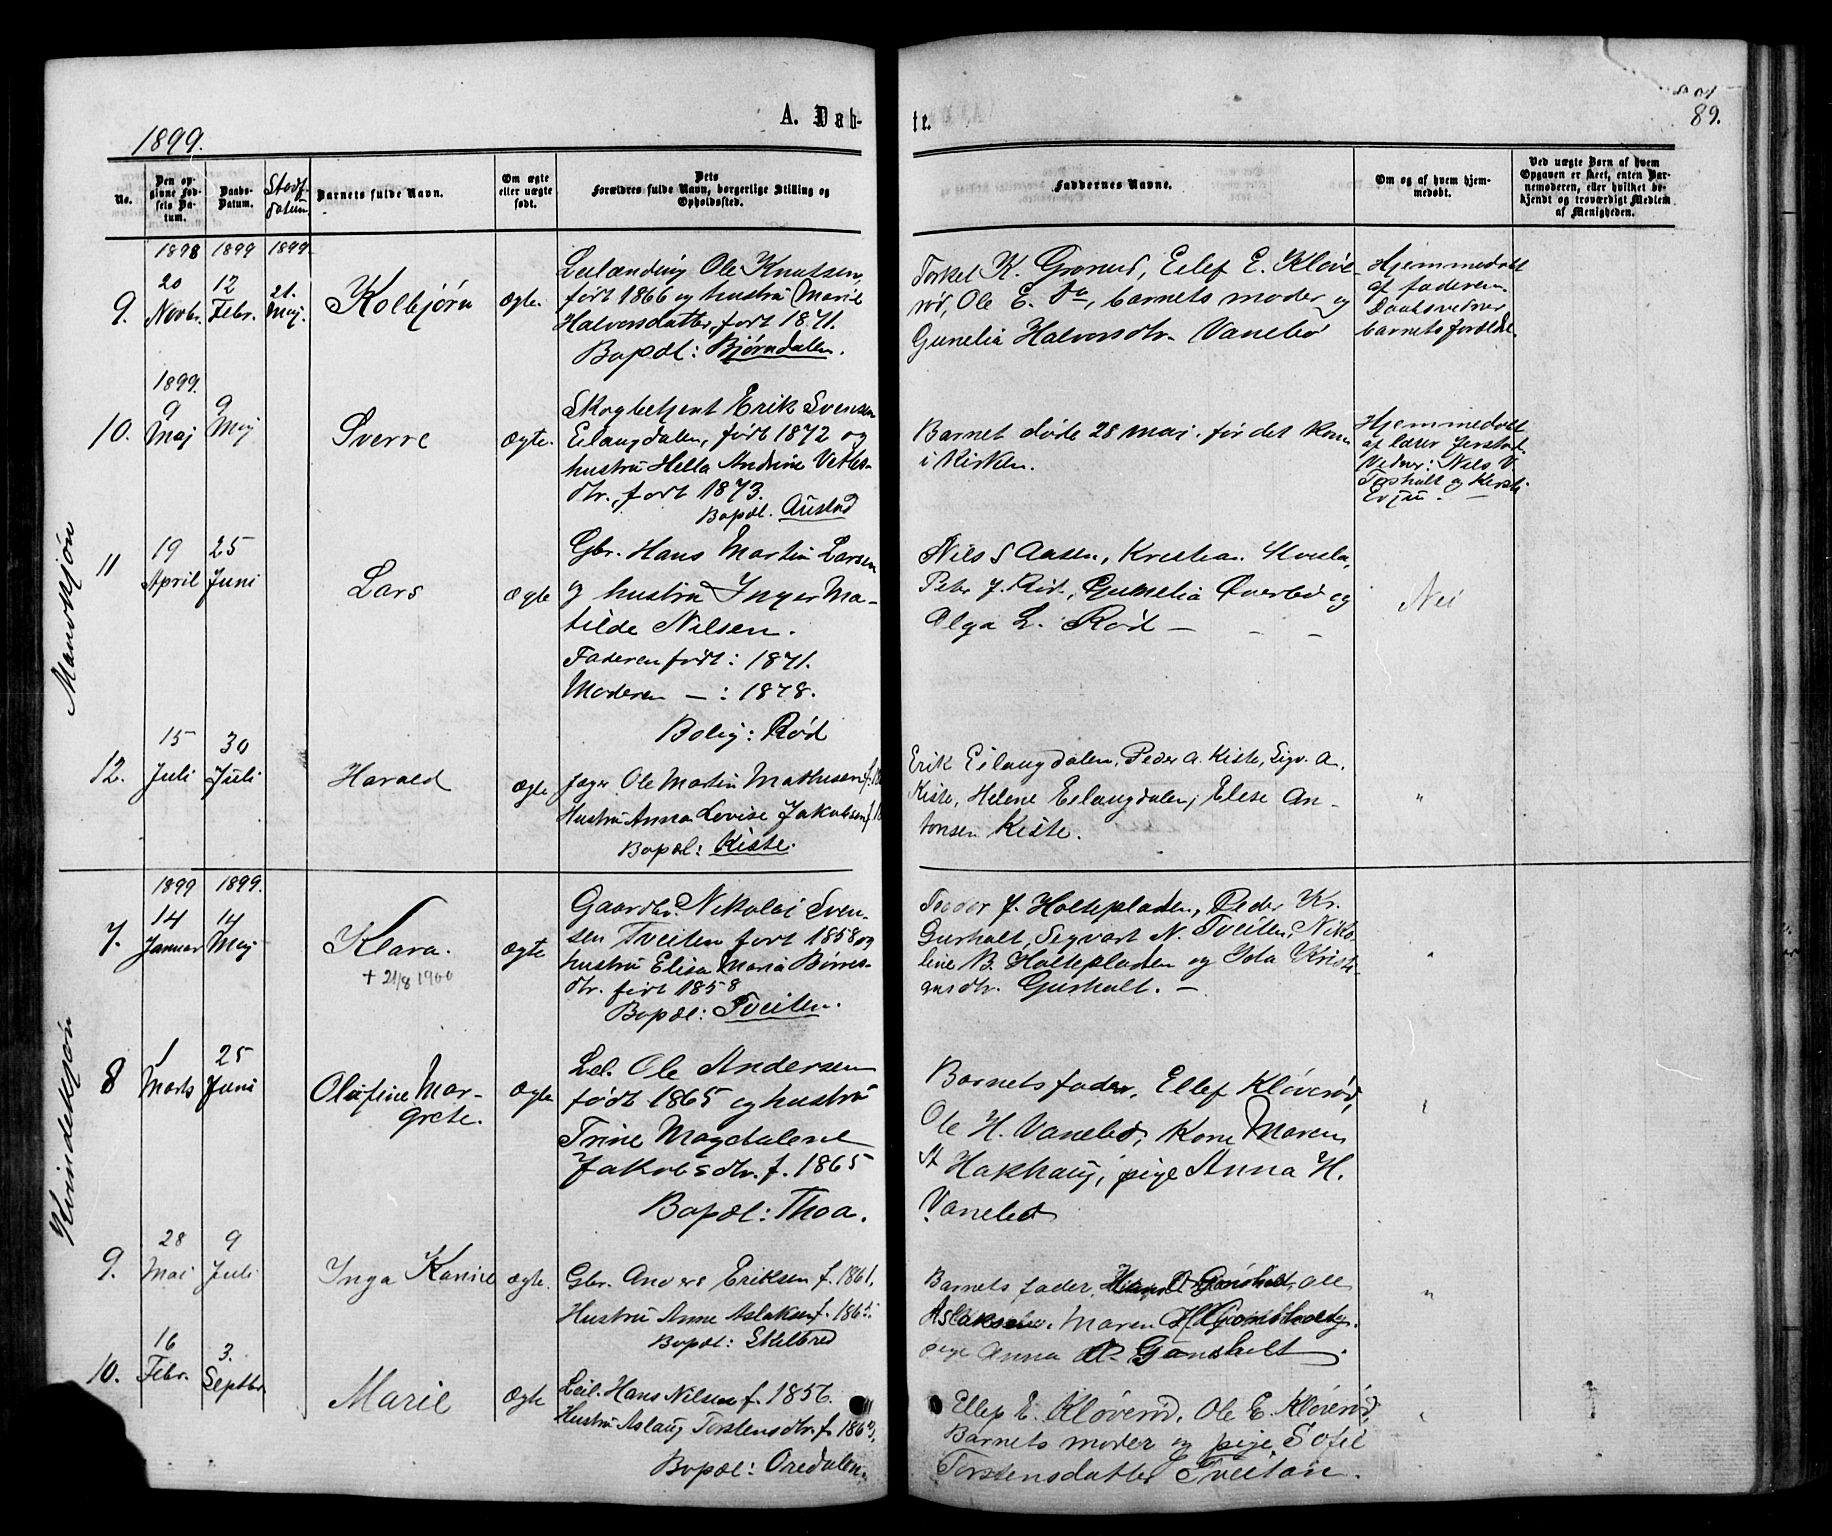 1899.
A. Daab-
te.
89.
No.
Den opgivne Fødsels Datum.
Daabs-Datum.
Stadf. datum
Barnets fulde Navn.
Om ægte eller uægte født.
Dets Forældres fulde Navn, borgerlige Stilling og Opholdssted.
Faddernes Navne.
Om og af hvem hjemmedøbt.
Ved uægte Børn af hvem Opgaven er skeet, enten Barnemoderen, eller hvilket bekjendt og troværdigt Medlem af Menigheden.
Mandkjøn
1898 1899 1899
9.
20 Novbr.
12 Febr.
21. Maj.
Kolbjørn
ægte.
Leilænding Ole Knutsen,
født 1866 og hustru Marie
Halvorsdatter, født 1871.
Bopæl: Bjørndalen.
Torkel K. Grorud, Eilef E. Kløve-
rød, Ole E. Do, barnets moder og
Gunelia Halvorsdtr. Vanebo
Hjemmedøbt
af faderen.
Daabsvidner
barnets foreldre.
1899.
10.
9 Maj
9 Maj
Sverre
ægte.
Skogbetjent Erik Svensen
Eilaugdalen, født 1872 og
hustru Hella Andrine Vetles-
dtr., født 1873.
Bopæl. Austad
Barnet døde 28 mai. før det kom
i Kirken.
Hjemmedøbt
af lærer
Vidner: Nils V.
Torsholt og
11
19 April
25 Juni
Lars
ægte
Gbr. Hans Martin Larsen
og hustru Inger Ma-
tilde Nilsen.
Faderen født: 1871.
Moderen — : 1878.
Bolig: Rød
Nils S Aasen, Kristian
Peder J. Rød, Gunelia Øverbø og
Olga L. Rød — - -
Nei
12.
15 Juli
30 Juli
Harald
ægte
Jæger Ole Martin Mathisen f.
Hustru Anna Lovise Jakobsen f.
Bopæl: Kiste.
Erik Eilaugdalen, Peder A. Kiste, Sigv. A.
Kiste, Helene Eilaugdalen, Elese An-
tonsen Kiste.
"
Kvindekjøn
1899 1899.
7.
14 Januar
14 Maj
Klara.
+ 21/8 1900
ægte
Gaardbr. Nikolai Sven-
sen Tveiten født 1858 og
hustru Elisa Maria Børres-
dtr. født 1858
Bopæl: Tveiten.
Teodor J. Holtepladen, Peder Kr.
Gusholt, Sigvart N. Tveiten, Niko-
line B. Holtepladen og Ida Kristi-
ansdtr. Gusholt. —
"
8
1 Marts
25 Juni
Olufine Mar-
grete.
ægte
Leil. Ole Andersen
født 1865 og hustru
Trine Magdalene
Jakobsdtr. f. 1865
Bopæl: Thoa.
Barnets fader, Ellef Kløverød,
Ole H. Vanebo, Kone Maren
A Hakhaug, pige Anna H.
Vanebo
"
9.
28 Mai
9 Juli
Inga Karine
ægte.
Gbr. Anders Eriksen f. 1861.
Hustru Anne Aslaksen f.
Bopæl: Skilbred
Barnets fader, Hans Gonsholt, Ole
Aslaksen, Maren H Gonsholt og
pige Anna A. Gonsholt.
"
10.
16 Febr.
3. Septbr.
Marie
ægte
Leil. Hans Nilsen f. 1856.
Hustru Aslaug Torstensdtr. f.
Bopæl: Oredalen.
Ellef E. Kløverød, Ole E. Kløverød,
Barnets moder og pige Sofie
Torstensdatter Tveitan.
"